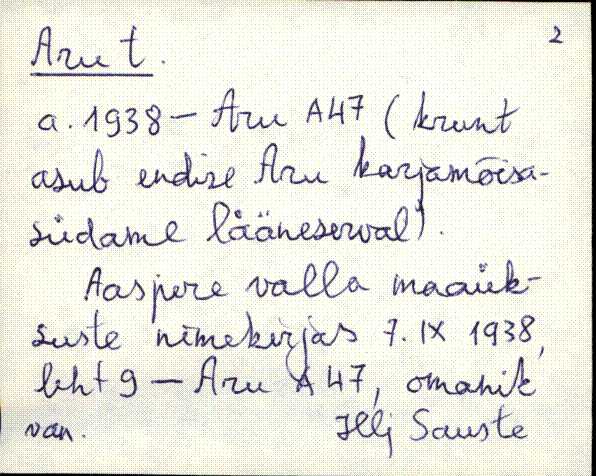 2
Aru t.
a. 1938 – Aru A47 (krunt
asub endise Aru karjamõisa-
südame lääneserval).
Aaspere valla maaük-
suste nimekirjas 7. IX 1938,
leht 9 – Aru A47, omanik
van. Illj Sauste